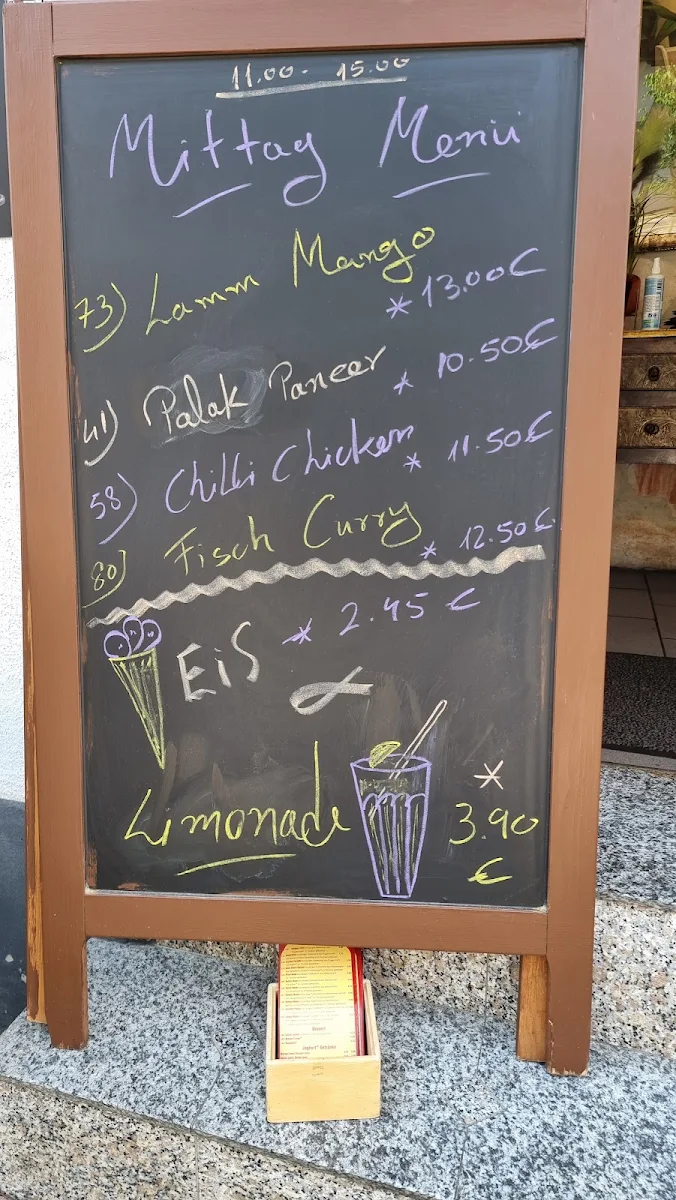 11.00 - 15.00
Mittag Menü
73) Lamm Mango
* 13.00€
41) Palak Paneer * 10.50€
58) Chilli Chicken * 11.50€
80) Fisch Curry * 12.50€
Eis * 2.45 €
Limonade * 3.90
€
Dessert